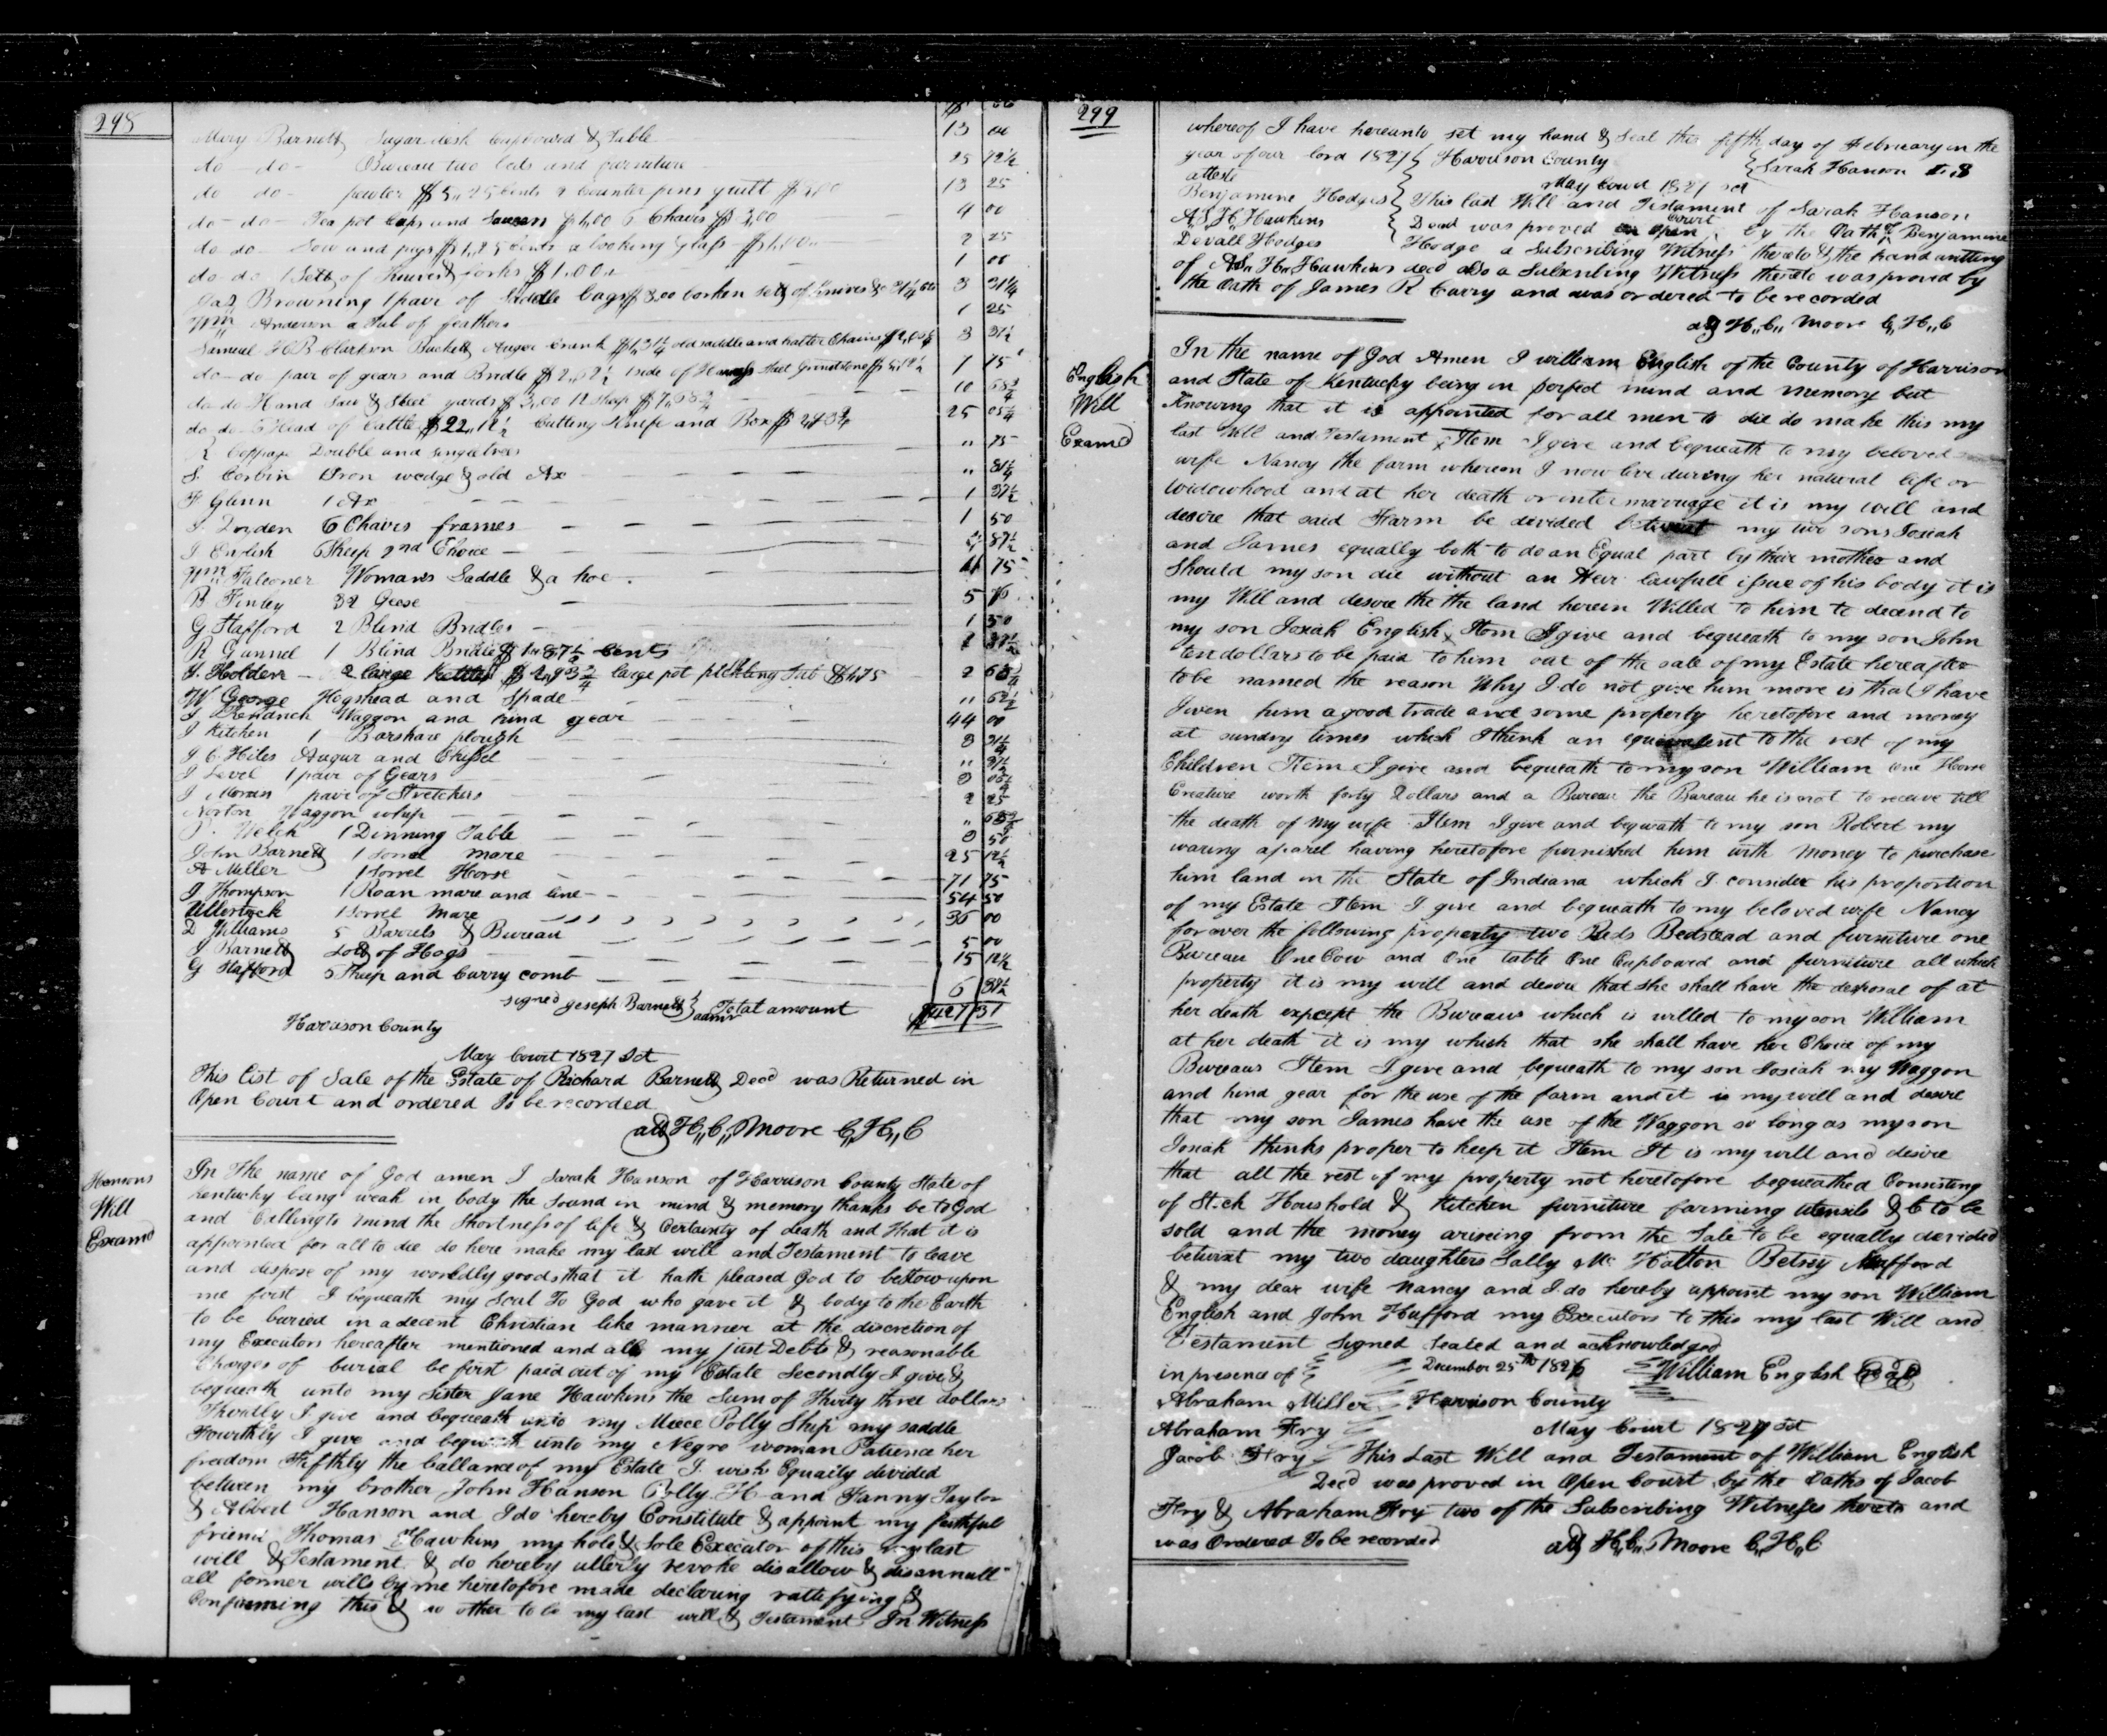 298
Mary Barnett Sugar desk Cupboard & Table 13 00
do do Bureau two beds and furniture 25 12½
do do pewter $5,,25 Cents & Counter pins quilt 13 25
do do Tea pot Cups and Saucers $1,00 6 Chairs $3,00 4 00
do do Sow and pigs $1,25 Cents a looking glass $1,00 2 25
do do 1 Sett of Knives & forks $1.00 1 00
Browning 1 pair of Saddle bags $3,00 broken sett of knives & 31¼ 3 31¼
Wm Anderson a Tub of feathers 1 25
Samuel H B Clarkson Buckett Auger Crank $1,31¼ old saddle and halter Chains 3 31¼
do do pair of gears and Bridle $2,,62½ 1 side of Grindstone 7 75
do do Hand Saw & Steel yards $3,00 12 Sheep $7,68¾ 10 68¾
do do 6 Head of Cattle $22,,12½ Cutting Knife and Box 25 05¼
Double and singletrees ,, 75
S. Corbin Iron wedge & old Ax ,, 31¼
F Glenn 1 Ax 1 37½
6 Chairs frames 1 50
J English 6 Sheep 2nd Choice 87½
Wm Falconer Womans Saddle & a hoe 75
B Finley 32 Geese 5
G Stafford 2 Blind Bridles 1 50
R Gunnel 1 Blind Bridle $1,,87½ Cents
J. Holden 2 large Kettles $2,,93¾ large pot pickling tub $1,,75 2
W George Hogshead and Spade ,, 62½
Waggon and hind gear 44 00
J Kitchen 1 Barshare plough 3 31¼
J C Hiles Augur and Chissel ,, 37½
J Level 1 pair of Gears
J Moran 1 pair of Stretchers 2 25
Norton Waggon whip ,,
Welch 1 Dinning Table 50
John Barnett 1 Sorrel Mare 25 12½
A Miller 1 Sorrel Horse 71 75
J Thompson 1 Roan mare and line 54 50
1 Sorrel Mare 36 00
D Williams 5 Barrels & Bureau 5 00
J Barnett Lott of Hogs 15 12½
G Stafford 5 Sheep and Curry comb 6
signed Joseph Barnett admr Total amount $427 37
Harrison County
May Court 1827 Sct
This list of Sale of the Estate of Richard Barnett Decd was Returned in
Open Court and ordered To be recorded
att H,,C,, Moore C,,H,,C
Hansons
Will
Examd
In The name of God amen I Sarah Hanson of Harrison County State of
Kentucky being weak in body tho Sound in mind & memory thanks be to God
and Calling to mind the Shortness of life & Certainty of death and that it is
appointed for all to die do here make my last will and Testament to leave
and dispose of my worldly goods that it hath pleased God to bestow upon
me first I bequeath my Soul To God who gave it & body to the Earth
to be buried in a decent Christian like manner at the discretion of
my Executors hereafter mentioned and all my just Debts & reasonable
Charges of burial be first paid out of my Estate Secondly I give &
bequeath unto my Sister Jane Hawkins the Sum of Thirty three dollars
Thirdly I give and bequeath unto my Niece Polly Ship my saddle
Fourthly I give and bequeath unto my Negro woman Patience her
freedom Fifthly the ballance of my Estate I wish Equally divided
between my brother John Hanson Polly H and Fanny Taylor
& Albert Hanson and I do hereby Constitute & appoint my faithful
friend Thomas Hawkins my hole & Sole Executor of this my last
will & Testament & do hereby utterly revoke disallow & disannull
all former wills by me heretofore made declaring rattifying &
Confirming this & no other to be my last will & Testament In Witness
299
whereof I have hereunto set my hand & Seal this fifth day of February in the
year of our lord 1827 Harrison County Sarah Hanson
atteste May Court 1827 sct
Benjamine Hodges This last Will and Testament of Sarah Hanson
A,,S,,H,,Hawkins Decd was proved in open Court by the Oath of Benjamine
Devall Hodges Hodge a Subscribing Witness thereto & the hand writting
of A,,S,, H,, Hawkins decd also a Subscribing Witness thereto was proved by
the Oath of James R Curry and was ordered to be recorded
att H,,C,, Moore C,,H,,C
English
Will
Examd
In the name of God Amen I william English of the County of Harrison
and State of Kentucky being in perfect mind and memory but
Knowing that it is appointed for all men to die do make this my
last Will and Testament Item I give and bequeath to my beloved
wife Nancy the farm whereon I now live during her natural life or
Widowhood and at her death or inter marriage it is my will and
desire that said Farm be divided betwixt my two sons Josiah
and James equally both to do an Equal part by their mother and
Should my son die without an Heir lawfull issue of his body it is
my Will and desire the the land herein Willed to him to decend to
my son Josiah English Item I give and bequeath to my son John
ten dollars to be paid to him out of the sale of my Estate hereafter
to be named the reason Why I do not give him more is that I have
Given him a good trade and some property heretofore and money
at sundry times which I think an equivalent to the rest of my
Children Item I give and bequeath to my son William one Horse
Creature worth forty Dollars and a Bureau the Bureau he is not to receive till
the death of my wife Item I give and bequeath to my son Robert my
waring aparel having heretofore furnished him with money to purchase
him land in the State of Indiana which I consider his proportion
of my Estate Item I give and bequeath to my beloved wife Nancy
forever the following property two Beds Bedstead and furniture one
Bureau One Cow and One table One Cupboard and furniture all which
property it is my will and desire that she shall have the desposal of at
her death except the Bureau which is willed to my son William
at her death it is my which that she shall have her Choice of my
Bureaus Item I give and bequeath to my son Josiah my Waggon
and hind gear for the use of the farm and it is my will and desire
that my son James have the use of the Waggon so long as my son
Josiah thinks proper to keep it Item It is my will and desire
that all the rest of my property not heretofore bequeathed Consisting
of Stock Houshold & Kitchen furniture farming utensils &C to be
sold and the money ariseing from the Sale to be equally devided
betwixt my two daughters Sally Mc Hatton Betsey Hufford
& my dear wife Nancy and I do hereby appoint my son William
English and John Hufford my Executors to this my last Will and
Testament Signed Sealed and acknowledged
in presence of December 25th 1826 William English Seal
Abraham Miller Harrison County
Abraham Fry May Court 1827 Sct
Jacob Fry This Last Will and Testament of William English
Decd was proved in Open Court by the Oaths of Jacob
Fry & Abraham Fry two of the Subscribing Witnesses thereto and
was Ordered To be recorded att H,,C,, Moore C,,H,,C